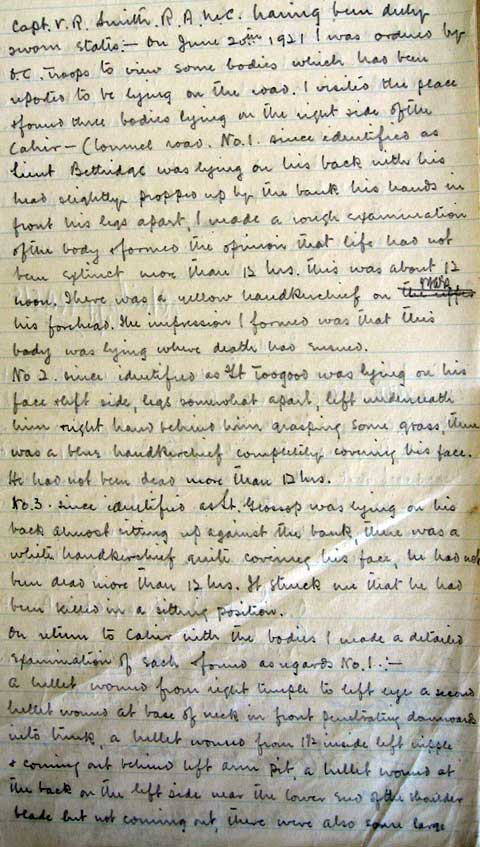 Capt. V. R. Smith. R. A. M. C. having been duly
sworn states:— On June 20th 1921 I was ordered by
O.C. troops to view some bodies which had been
reported to be lying on the road. I visited the place
& found three bodies lying on the right side of the
Cahir – Clonmel road. No. 1. since identified as
Lieut Bettridge was lying on his back with his
head slightly propped up by the bank his hands in
front his legs apart, I made a rough examination
of the body & formed the opinion that life had not
been extinct more than 12 hrs. this was about 12
noon. There was a yellow handkerchief on the
his forehead. The impression I formed was that this
body was lying where death had ensued.
No 2. since identified as Lt Toogood was lying on his
face & left side, legs somewhat apart, left underneath
him & right hand behind him grasping some grass, there
was a blue handkerchief completely covering his face.
He had not been dead more than 12 hrs.
No. 3. since identified as Lt. Glossop was lying on his
back almost sitting up against the bank, there was a
white handkerchief quite covering his face, he had not
been dead more than 12 hrs. It struck me that he had
been killed in a sitting position.
On return to Cahir with the bodies I made a detailed
examination of each & found as regards No. 1 :—
A bullet wound from right temple to left eye a second
bullet wound at base of neck in front penetrating downwards
into trunk, a bullet wound from 1½ inside left nipple
& coming out behind left arm pit, a bullet wound at
the back on the left side near the lower end of the shoulder
blade but not coming out, there were also some large